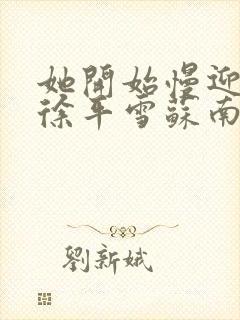 她開始慢迎
徐平雪蘇南
劉新娥